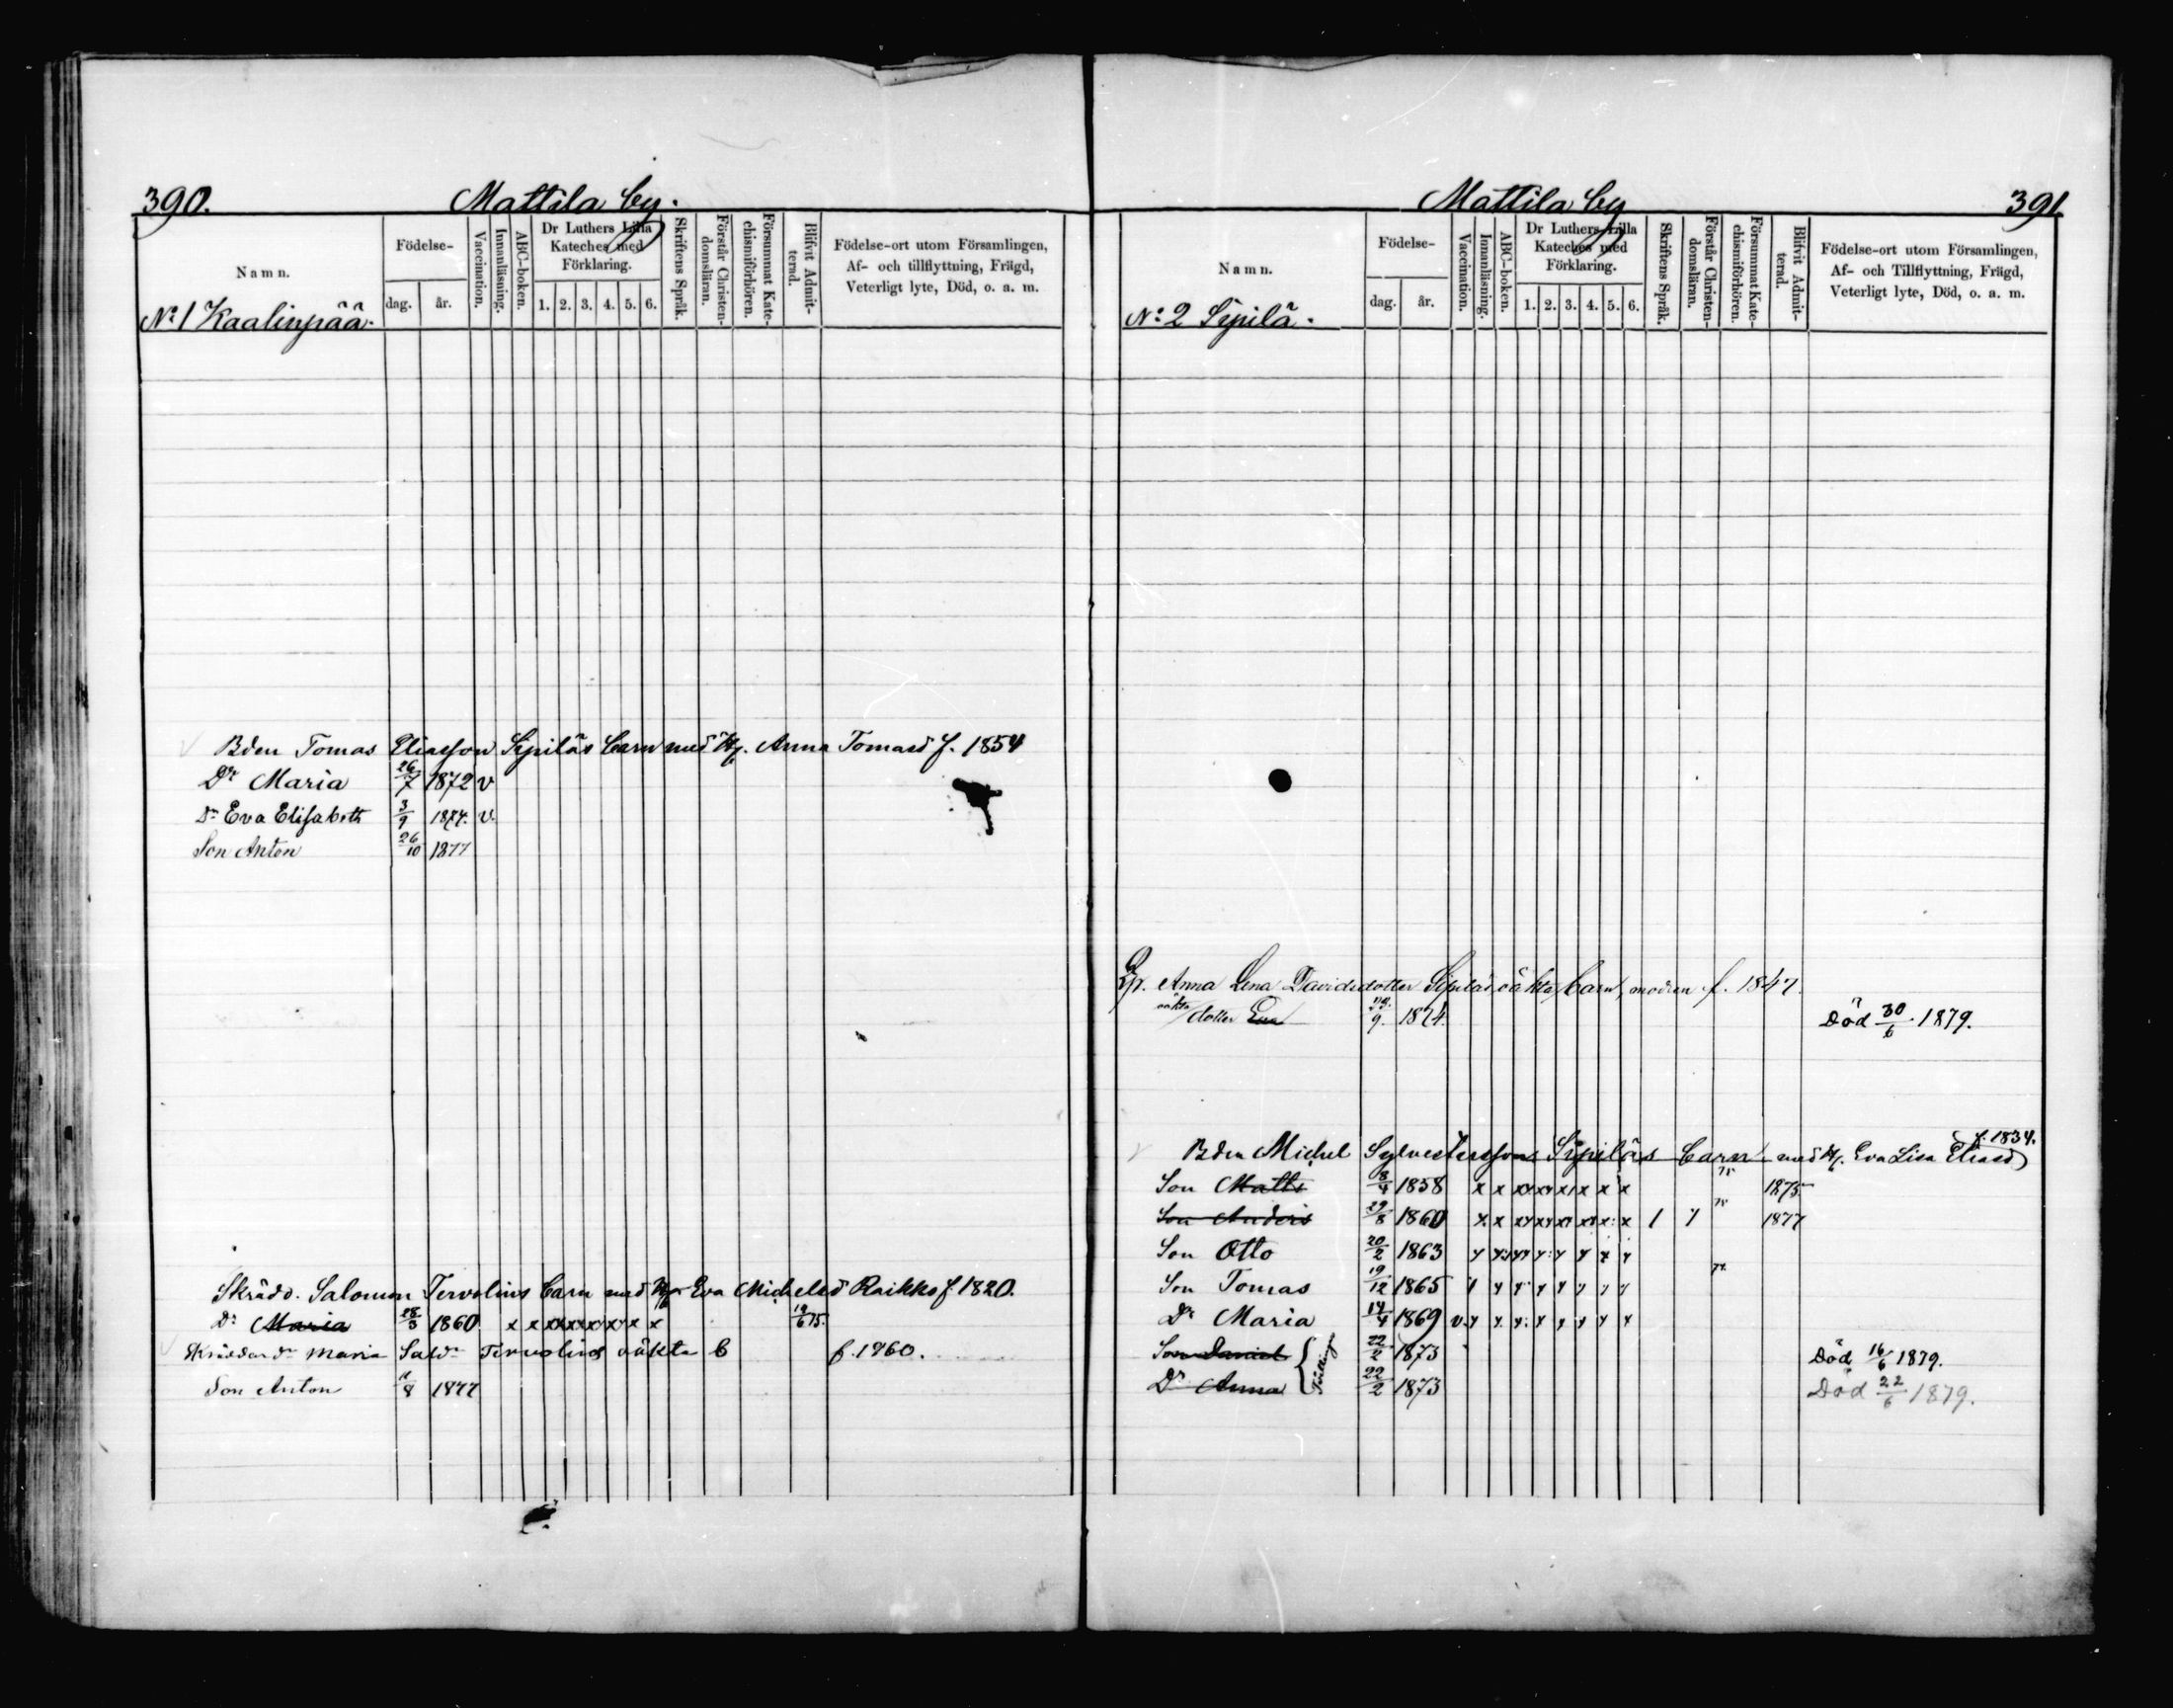 390. Mattila by.
Namn. Födelse- dag. år. Vaccination. Innanläsning. ABC-boken. Dr Luthers Lilla Kateches med Förklaring. 1. 2. 3. 4. 5. 6. Skriftens Språk. Förstår Christendomsläran. Försummat Katechismiförhören. Blifvit Admitterad. Födelse-ort utom Församlingen, Af- och tillflyttning, Frägd, Veterligt lyte, Död, o. a. m.
No 1 Kaalinpää.
Bden Tomas Eliasson Sipiläs barn med H. Anna Tomasd f. 1854
Dr Maria 26/7 1872 v
Dr Eva Elisabeth 3/9 1874. v.
Son Anton 26/10 1877
Skrädd. Salomon Tervolins barn med H Eva Michelsd Raikko f. 1820.
Dr Maria 28/3 1860 x x x x x x x x x 19/6 75.
Skräddar dr Maria Saldr Tervolins oäkta b f. 1860.
Son Anton 11/8 1877
Mattila by 391
Namn. Födelse- dag. år. Vaccination. Innanläsning. ABC-boken. Dr Luthers Lilla Kateches med Förklaring. 1. 2. 3. 4. 5. 6. Skriftens Språk. Förstår Christendomsläran. Försummat Katechismiförhören. Blifvit Admitterad. Födelse-ort utom Församlingen, Af- och Tillflyttning, Frägd, Veterligt lyte, Död, o. a. m.
No 2 Sipilä.
Anna Lena Davidsdotter Sipiläs oäkta barn, modren f. 1847.
oäkta dotter Eva 9. 1874. Död 30/6. 1879.
Bden Michel Sylvestersson Sipiläs barn med H. Eva Lisa Eliasd f. 1834.
Son Matts 8/4 1858 x x x x x x x x 75 1875
Son Anders 29/8 1860 x x x x x x x x 1 1 75 1877
Son Otto 20/2 1863
Son Tomas 19/12 1865 74
Dr Maria 14/4 1869 v.
Son Daniel 22/2 1873 Död 16/6 1879.
Dr Anna 22/2 1873 Död 22/6 1879.
Tvilling